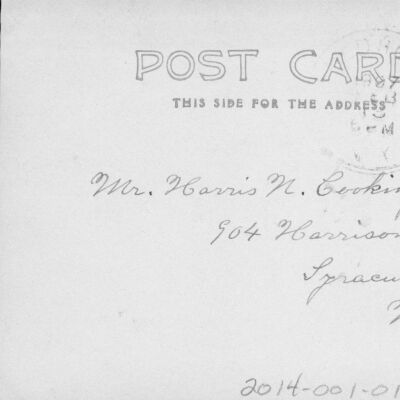 POST CARD
THIS SIDE FOR THE ADDRESS
Mr. Harris N. Cookin
904 Harrison
Syracu
N
2014-001-01